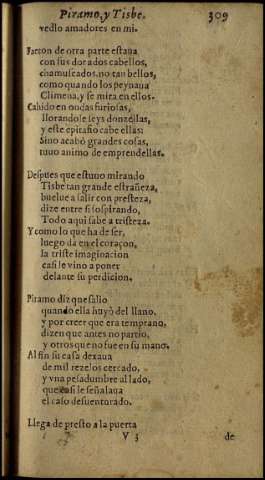 Piramo, y Tisbe. 309
vedlo amadores en mi.
Faeton de otra parte estaua
con sus dorados cabellos,
chamuscados, no tan bellos,
como quando los peynaua
Climena, y se mira en ellos.
Cahido en ondas furiosas,
llorandole seys donzellas,
y este epitafio cabe ellas:
Sino acabó grandes cosas,
tuuo animo de emprendellas.
Despues que estuuo mirando
Tisbe tan grande estrañeza,
buelue a salir con presteza,
dize entre si sospirando,
Todo aqui sabe a tristeza.
Y como lo que ha de ser,
luego da en el coraçon,
la triste imaginacion
casi le vino a poner
delante su perdicion.
Piramo diz que salio
quando ella huyò del llano,
y por creer que era temprano,
dizen que antes no partio,
y otros que no fue en su mano.
Al fin su casa dexaua
de mil rezelos cercado,
y vna pesadumbre al lado,
que casi le señalaua
el caso desuenturado.
Llega de presto a la puerta
V 3 de